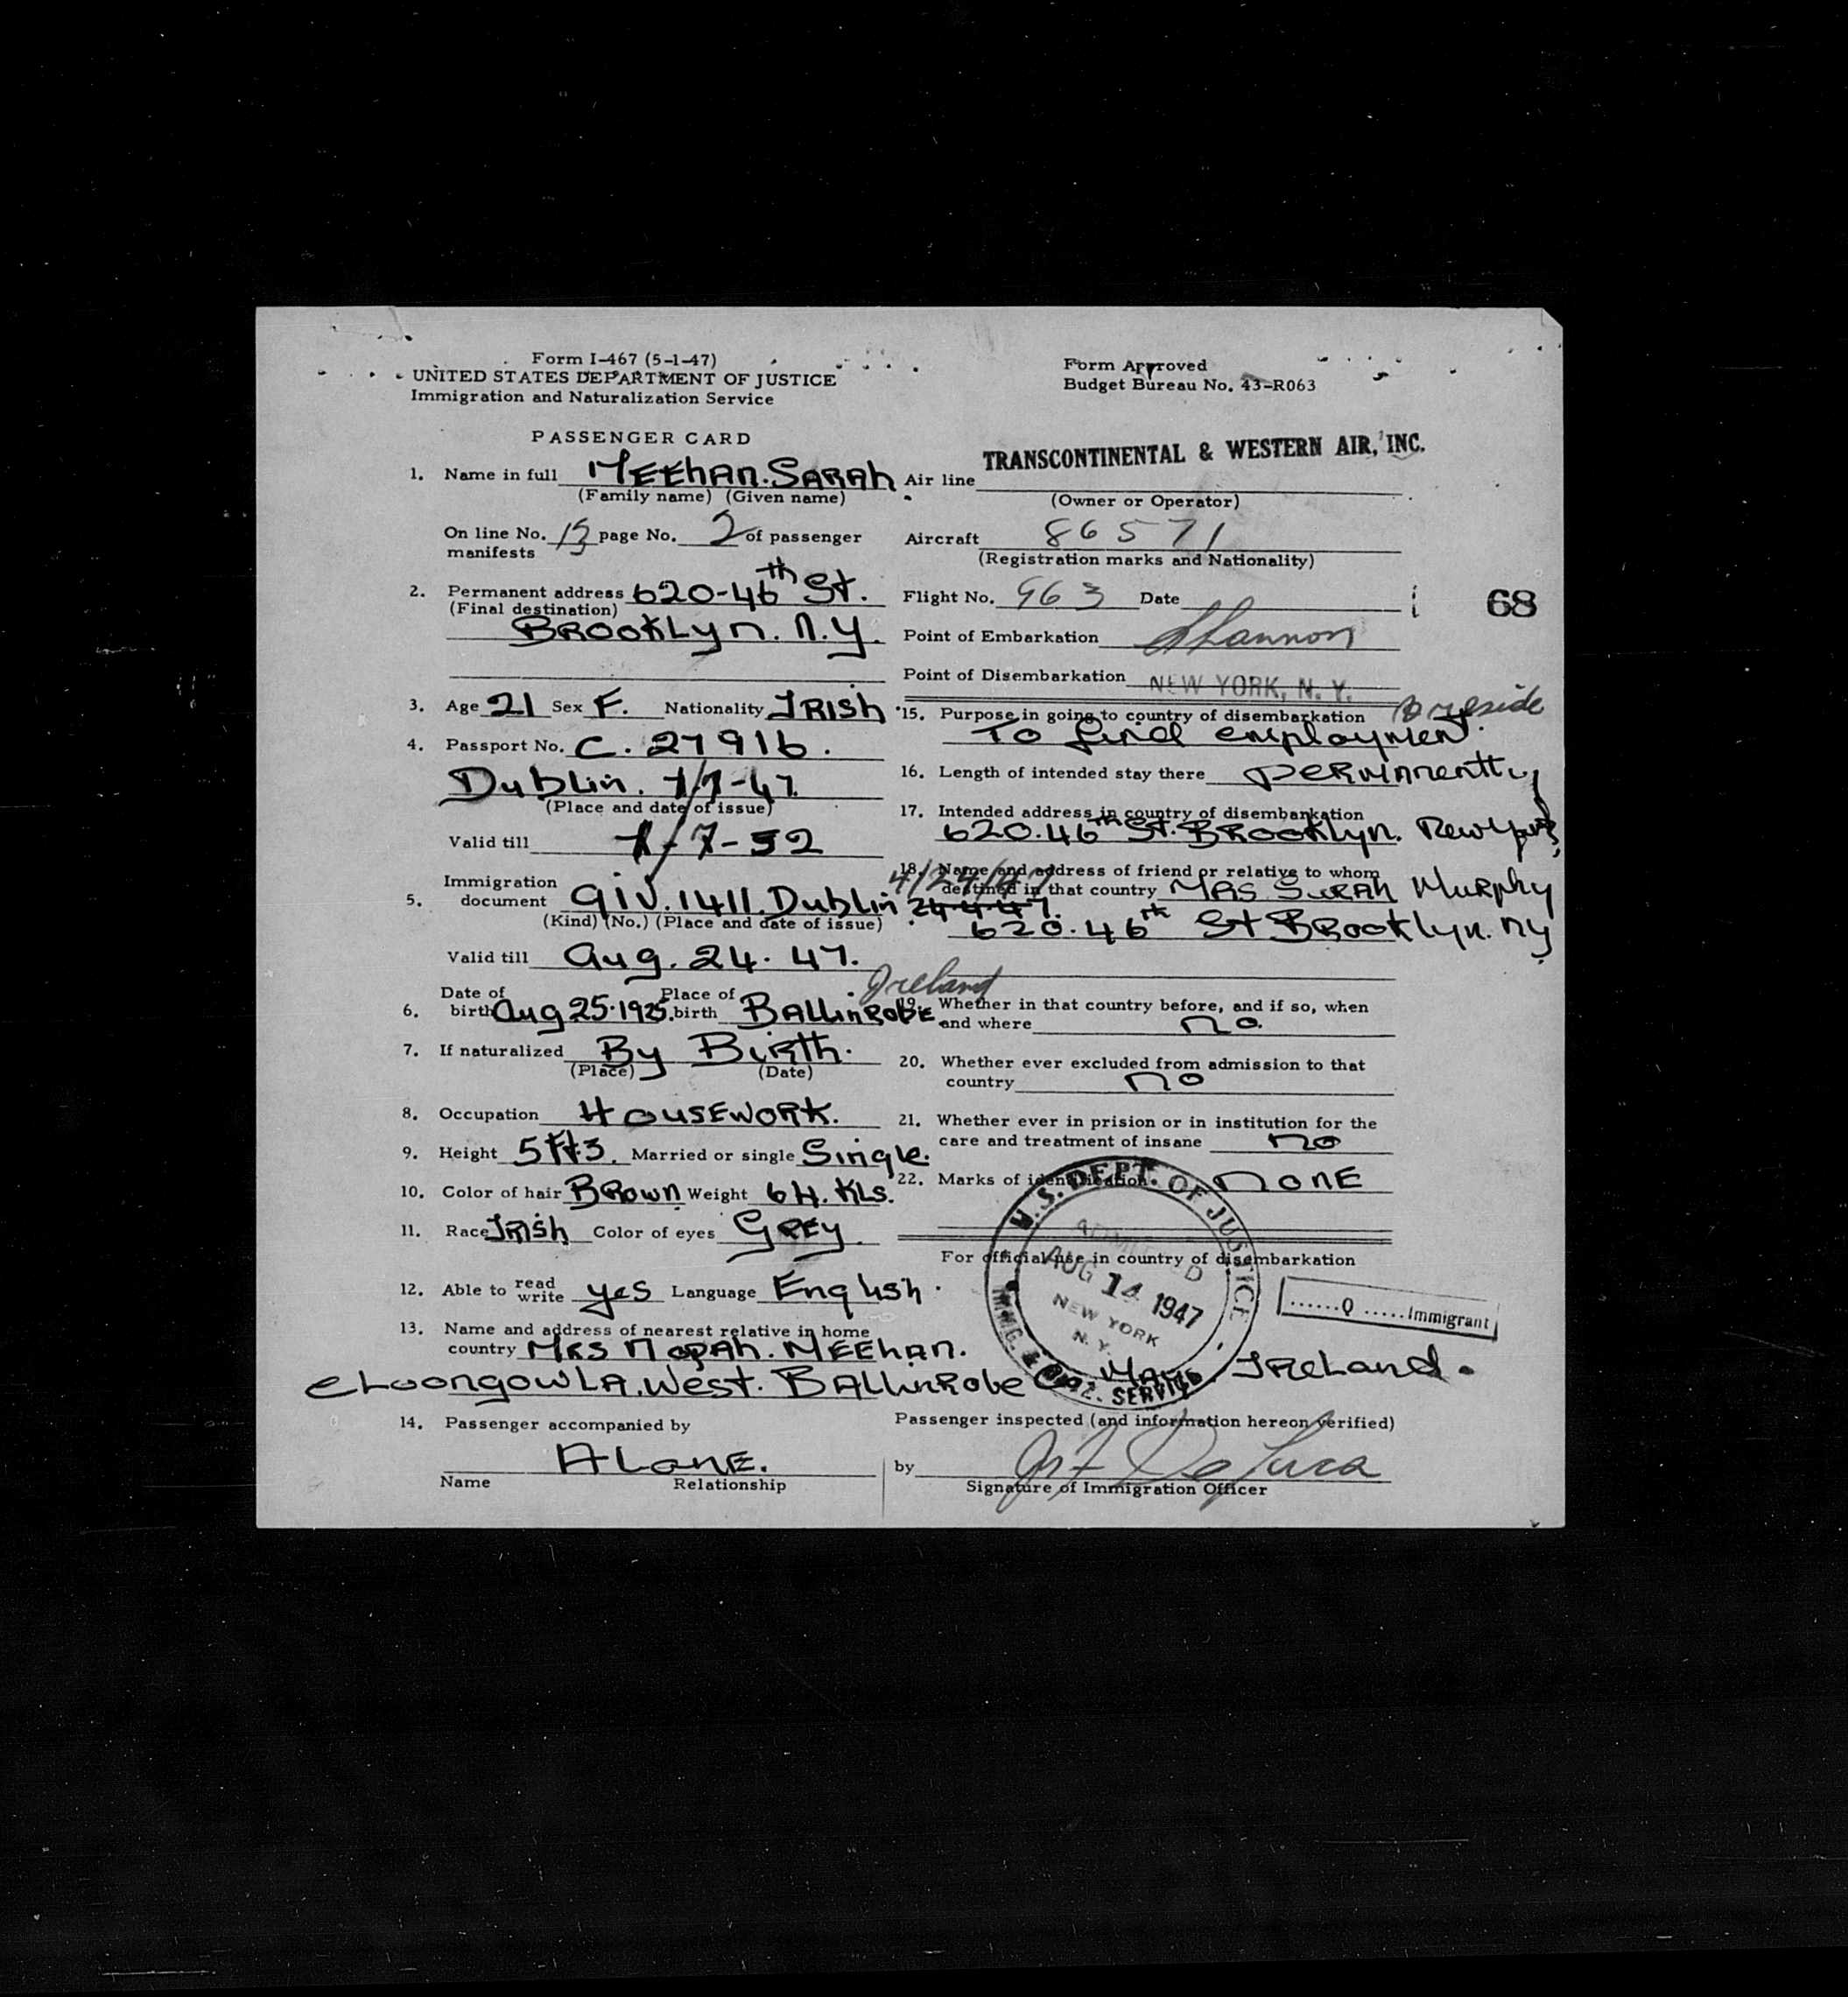 Form I-467 (5-1-47)
UNITED STATES DEPARTMENT OF JUSTICE
Immigration and Naturalization Service
Form Approved
Budget Bureau No. 43-R063
PASSENGER CARD
1. Name in full MEEhAn. SARAh
(Family name) (Given name)
On line No. page No. 2 of passenger
manifests
2. Permanent address 620-46th St.
(Final destination)
BROOKLyn. N.Y.
3. Age 21 Sex F. Nationality IRISh
4. Passport No. C. 27916.
Dublin. 7-47.
(Place and date of issue)
Valid till 7-52
Immigration
5. document QIV. 1411. Dublin 24.4.47.
4/24/47
(Kind) (No.) (Place and date of issue)
Valid till Aug. 24. 47.
Date of Place of Ireland
6. birth Aug 25. 1925. birth BALLinROBE
7. If naturalized By BIRth.
(Place) (Date)
8. Occupation HOUSEWORK.
9. Height 5 Ft 3. Married or single Single.
10. Color of hair BROwn Weight 64. KLS.
11. Race IRISh Color of eyes GREy.
12. Able to read write yes Language English.
13. Name and address of nearest relative in home
country MRS NORAh. MEEhAn.
CLOONGOWLA. West. BALLinRobe Co MAyo. IReLand.
14. Passenger accompanied by
ALONE.
Name Relationship
Air line TRANSCONTINENTAL & WESTERN AIR, INC.
(Owner or Operator)
Aircraft 86571
(Registration marks and Nationality)
Flight No. 963 Date
68
Point of Embarkation Shannon
Point of Disembarkation NEW YORK, N. Y.
15. Purpose in going to country of disembarkation to reside
To find employment.
16. Length of intended stay there PERMAnently
17. Intended address in country of disembarkation
620. 46th St. BROOKlyn. New York
18. Name and address of friend or relative to whom
destined in that country MRS SARAh Murphy
620. 46th St BROOKlyn. NY
19. Whether in that country before, and if so, when
and where no.
20. Whether ever excluded from admission to that
country no
21. Whether ever in prision or in institution for the
care and treatment of insane no
22. Marks of identification. nonE
For official use in country of disembarkation
U.S. DEPT. OF JUSTICE
ADMITTED
AUG 14 1947
NEW YORK
N. Y.
IMMIG. & NATZ. SERVICE
......Q .....Immigrant
Passenger inspected (and information hereon verified)
by De Luca
Signature of Immigration Officer